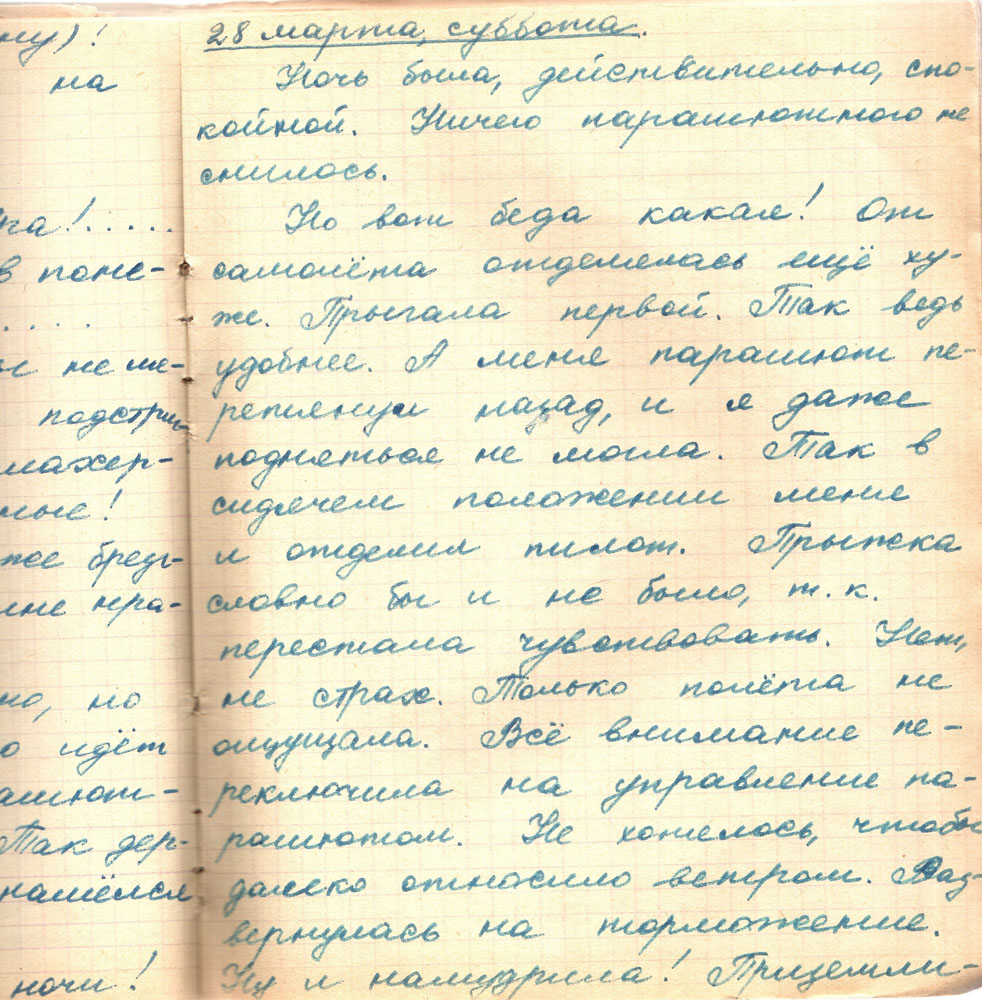 ну)!
на
па!.....
в поне-
.....
и не ме-
подстри-
махер-
ные!
же бреду-
мне нра-
но, но
о идёт
ашют-
Так дер-
нашёлся
ночи!
28 марта, суббота.
Ночь была, действительно, спо-
койной. Ничего парашютного не
снилось.
Но вот беда какая! От
самолёта отделялась ещё ху-
же. Прыгала первой. Так ведь
удобнее. А меня парашют пе-
ретянул назад, и я даже
подняться не могла. Так в
сидячем положении меня
и отделил пилот. Прыжка
словно бы и не было, т.к.
перестала чувствовать. Нет,
не страх. Только полёта не
ощущала. Всё внимание пе-
реключила на управление па-
рашютом. Не хотелось, чтобы
далеко относило ветром. Раз-
вернулась на торможение.
Ну и намудрила! Приземли-